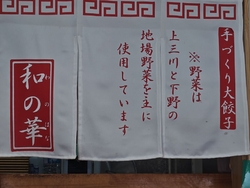 手づくり大餃子
※野菜は
上三川と下野の
地場野菜を主に
使用しています
わのはな
和の華